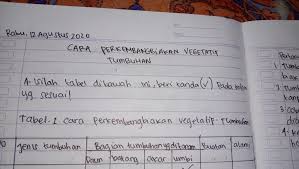 Rabu, 12 Agustus 2020
CARA PERKEMBANGBIAKAN VEGETATIF
TUMBUHAN
A. Isilah tabel dibawah ini, beri tanda (✓) Pada
yg sesuai!
Tabel. 1. cara perkembangbiakan vegetatif Tumbuhan
NO Jenis tumbuhan Bagian tumbuhan yg ditanam Buatan alami
Daun batang akar umbi